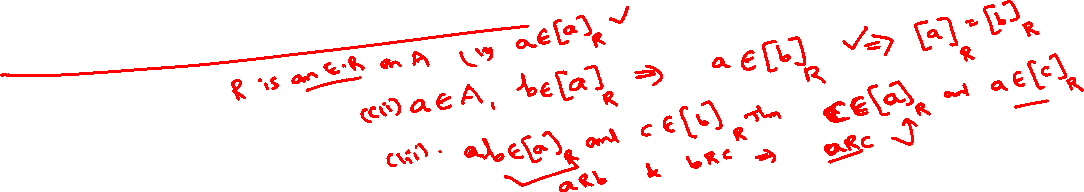 R is an E.R on A (i) a∈[a]_R ✓
(ii) a∈A, b∈[a]_R ⇒ a∈[b]_R ✓⇒ [a]_R = [b]_R
(iii). a,b∈[a]_R and c∈[b]_R Thn c∈[a]_R and a∈[c]_R
aRb & bRc ⇒ aRc